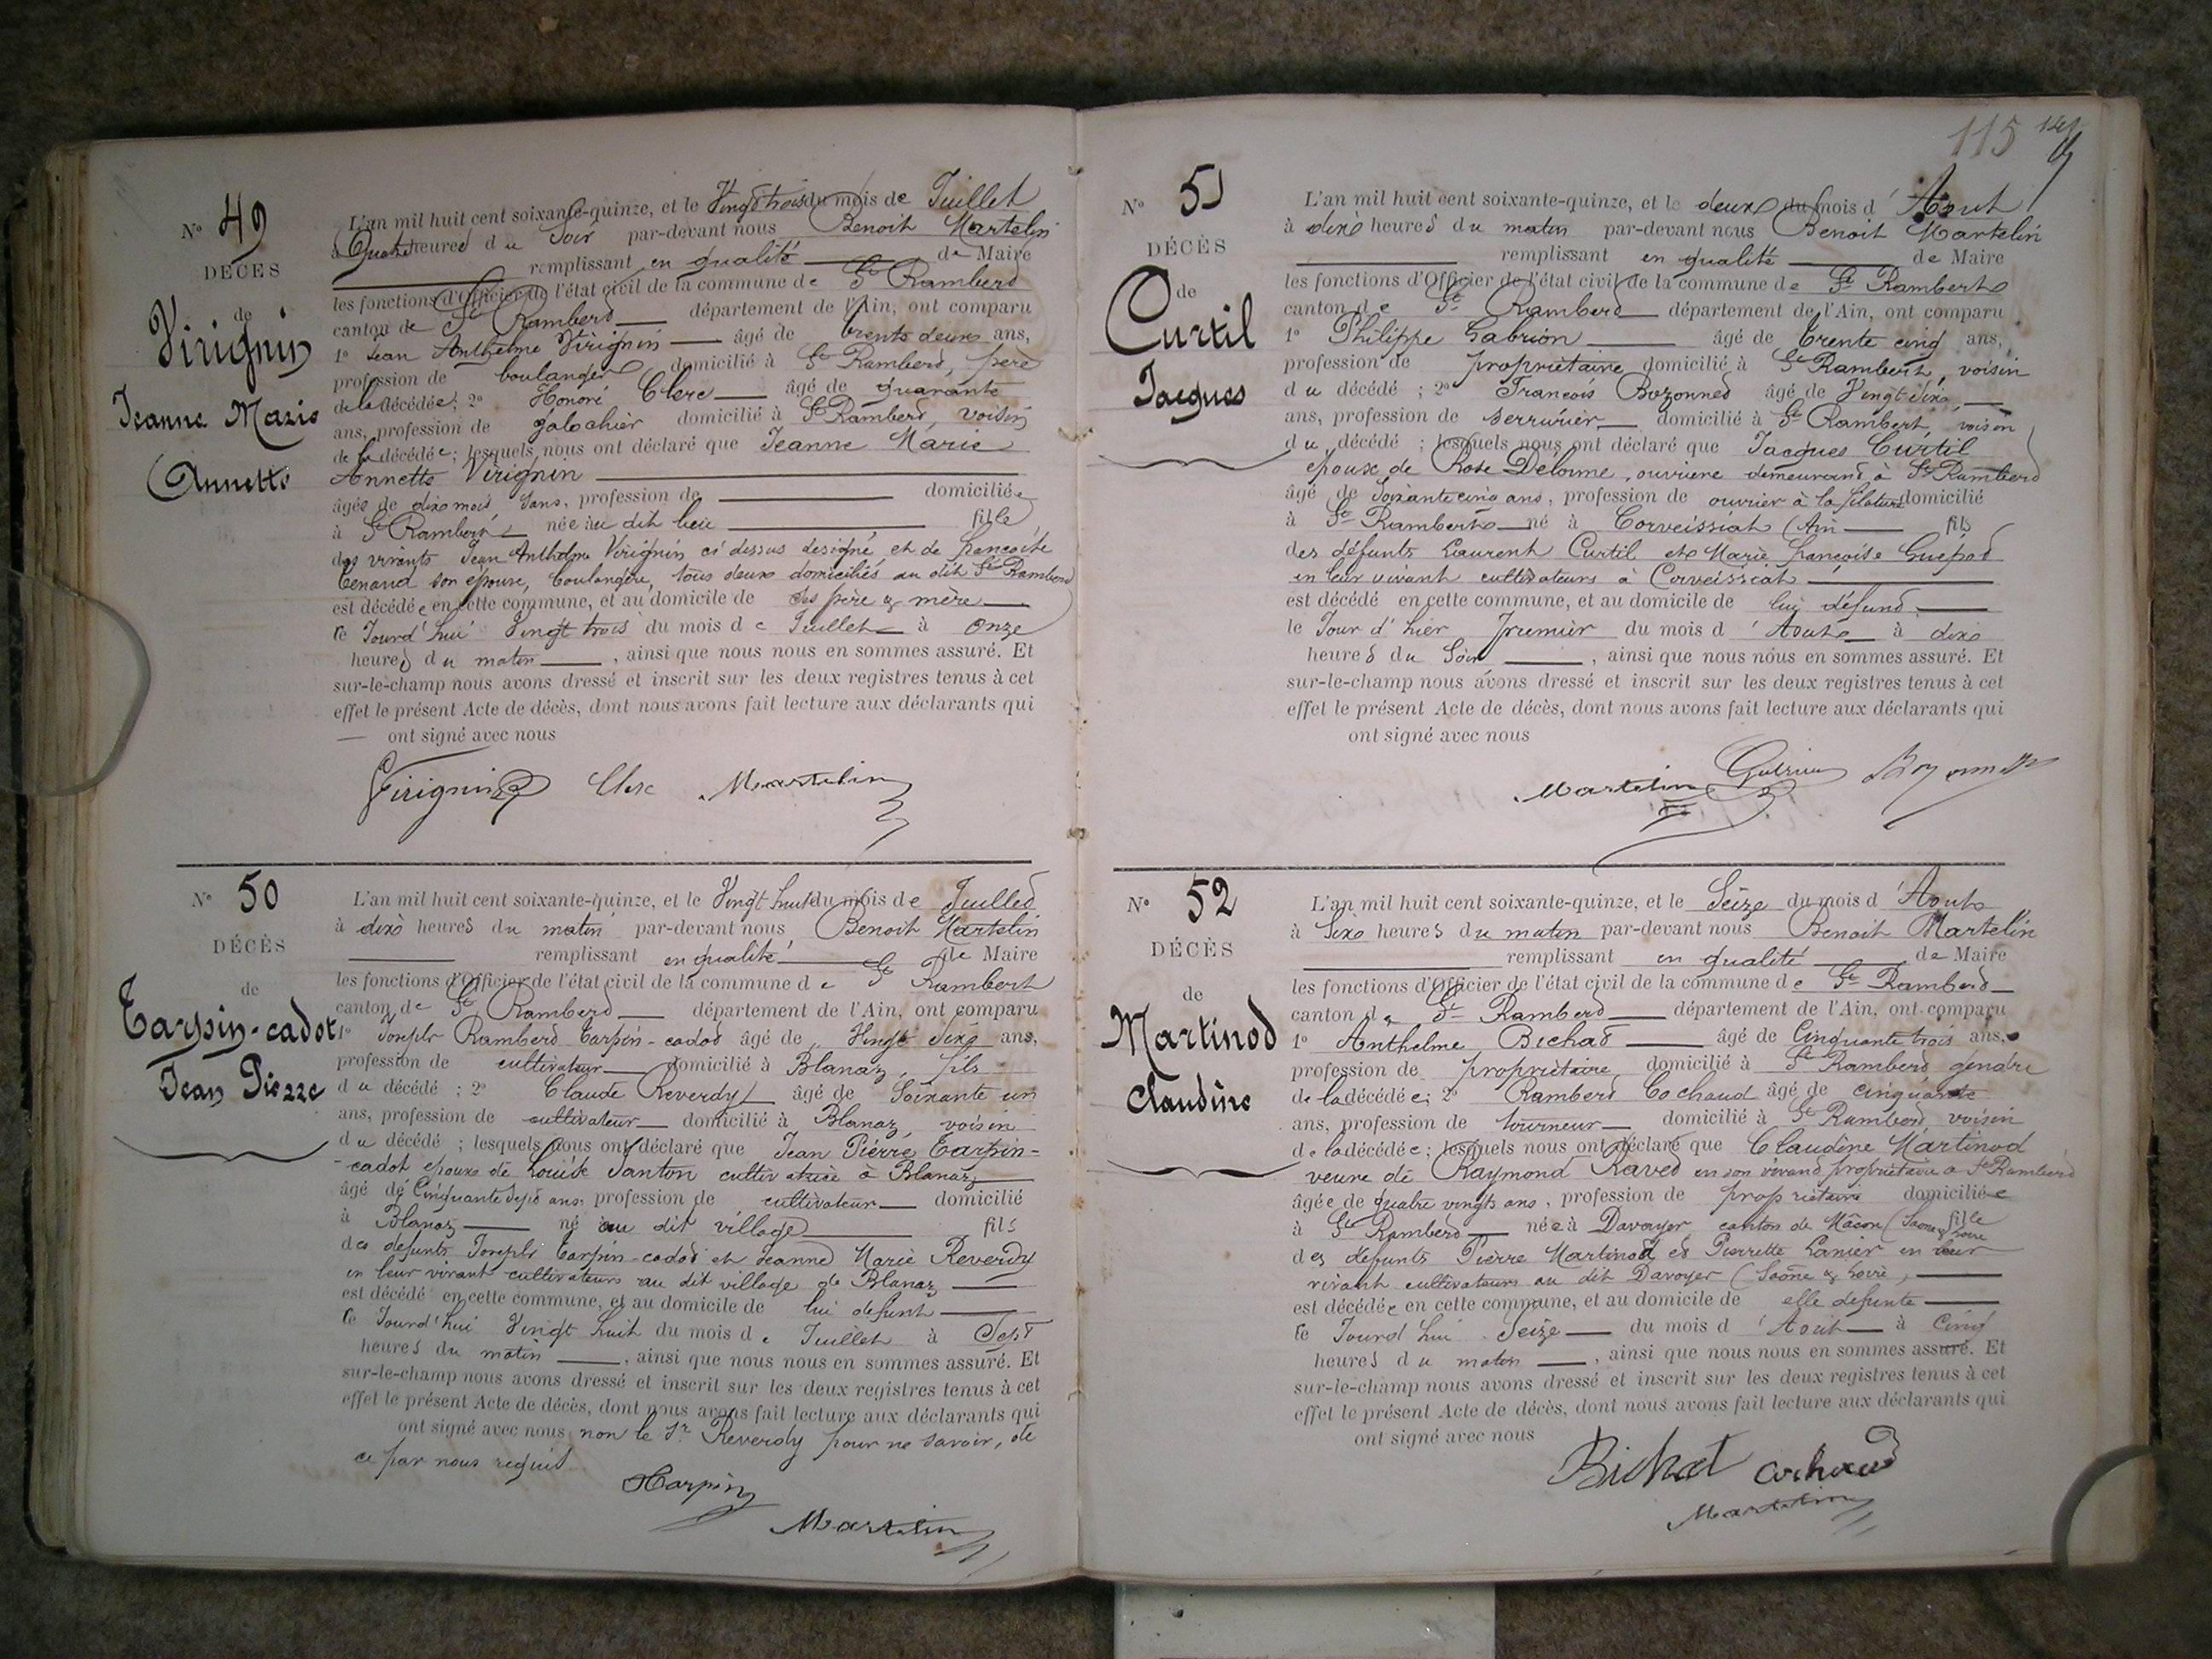 N° 49
DÉCÈS
de
Virignin
Jeanne Marie
Annette
L'an mil huit cent soixante-quinze, et le Vingt trois du mois de Juillet
à Quatre heures du Soir par-devant nous Benoit Martelin
remplissant en qualité de Maire
les fonctions d'Officier de l'état civil de la commune de St Rambert
canton de St Rambert département de l'Ain, ont comparu
1° Jean Anthelme Virignin âgé de trente deux ans,
profession de boulanger domicilié à St Rambert, père
de la décédée; 2° Honoré Clerc âgé de quarante
ans, profession de galochier domicilié à St Rambert, voisin
de la décédée; lesquels nous ont déclaré que Jeanne Marie
Annette Virignin
âgée de dix mois, sans, profession de domiciliée
à St Rambert née au dit lieu fille
des vivants Jean Anthelme Virignin ci dessus designé et de françoise
Tenand son épouse, boulangère, tous deux domiciliés au dit St Rambert
est décédée en cette commune, et au domicile de ses père & mère
ce Jourd'hui Vingt trois du mois de Juillet à onze
heures du matin, ainsi que nous nous en sommes assuré. Et
sur-le-champ nous avons dressé et inscrit sur les deux registres tenus à cet
effet le présent Acte de décès, dont nous avons fait lecture aux déclarants qui
ont signé avec nous
Virignin Clerc Martelin
N° 50
DÉCÈS
de
Tarpin-cadot
Jean Pierre
L'an mil huit cent soixante-quinze, et le Vingt huit du mois de Juillet
à dix heures du matin par-devant nous Benoit Martelin
remplissant en qualité de Maire
les fonctions d'Officier de l'état civil de la commune de St Rambert
canton de St Rambert département de l'Ain, ont comparu
1° Joseph Rambert Tarpin-cadot âgé de Vingt six ans,
profession de cultivateur domicilié à Blanaz, fils
du décédé; 2° Claude Reverdy âgé de Soixante un
ans, profession de cultivateur domicilié à Blanaz, voisin
du décédé; lesquels nous ont déclaré que Jean Pierre Tarpin-
cadot epoux de Louise Santon cultivatrice à Blanaz
âgé de Cinquante sept ans, profession de cultivateur domicilié
à Blanaz né au dit village fils
des defunts Joseph Tarpin-cadot et Jeanne Marie Reverdy
en leur vivant cultivateurs au dit village de Blanaz
est décédé en cette commune, et au domicile de lui defunt
ce Jourd'hui Vingt huit du mois de Juillet à Sept
heures du matin, ainsi que nous nous en sommes assuré. Et
sur-le-champ nous avons dressé et inscrit sur les deux registres tenus à cet
effet le présent Acte de décès, dont nous avons fait lecture aux déclarants qui
ont signé avec nous non le Sr Reverdy pour ne savoir, de
ce par nous requit.
Tarpin
Martelin
115
N° 51
DÉCÈS
de
Curtil
Jacques
L'an mil huit cent soixante-quinze, et le deux du mois d'Aout
à dix heures du matin par-devant nous Benoit Martelin
remplissant en qualité de Maire
les fonctions d'Officier de l'état civil de la commune de St Rambert
canton de St Rambert département de l'Ain, ont comparu
1° Philippe Gabrion âgé de trente cinq ans,
profession de propriétaire domicilié à St Rambert, voisin
du décédé; 2° François Bozonnet âgé de Vingt six
ans, profession de serrurier domicilié à St Rambert, voisin
du décédé; lesquels nous ont déclaré que Jacques Curtil
epoux de Rose Delorme, ouvriere demeurant à St Rambert
âgé de Soixante cinq ans, profession de ouvrier à la filature domicilié
à St Rambert né à Corveissiat (Ain fils
des défunts Laurent Curtil et Marie françoise Guépod
en leur vivant cultivateurs à Corveissiat
est décédé en cette commune, et au domicile de lui défunt
le Jour d'hier premier du mois d'Aout à dix
heures du Soir, ainsi que nous nous en sommes assuré. Et
sur-le-champ nous avons dressé et inscrit sur les deux registres tenus à cet
effet le présent Acte de décès, dont nous avons fait lecture aux déclarants qui
ont signé avec nous
Martelin Bozonnet
N° 52
DÉCÈS
de
Martinod
Claudine
L'an mil huit cent soixante-quinze, et le Seize du mois d'Aout
à Six heures du matin par-devant nous Benoit Martelin
remplissant en qualité de Maire
les fonctions d'Officier de l'état civil de la commune de St Rambert
canton de St Rambert département de l'Ain, ont comparu
1° Anthelme Bichat âgé de Cinquante trois ans,
profession de propriétaire domicilié à St Rambert gendre
de la décédée; 2° Rambert Cochaud âgé de cinquante
ans, profession de tourneur domicilié à St Rambert, voisin
de la décédée; lesquels nous ont déclaré que Claudine Martinod
veuve de Raymond Ravet en son vivant propriétaire à St Rambert
âgée de quatre vingts ans, profession de propriétaire domiciliée
à St Rambert née à Davayer, canton de Mâcon (Saone & Loire fille
des défunts Pierre Martinod et Pierrette Lanier en leur
vivant cultivateurs au dit Davayer (Saône & Loire,
est décédée en cette commune, et au domicile de elle defunte
ce Jourd'hui Seize du mois d'Aout à Cinq
heures du matin, ainsi que nous nous en sommes assuré. Et
sur-le-champ nous avons dressé et inscrit sur les deux registres tenus à cet
effet le présent Acte de décès, dont nous avons fait lecture aux déclarants qui
ont signé avec nous
Bichat Cochaud
Martelin